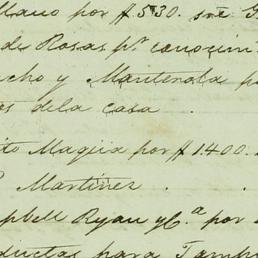 llano por $ 530. sre G
de Rosas pr. conocim
cho y Manterola p
os dela casa .
ito Maquia por $ 1400.
Martinez . .
pbell Ryan y Ca. por
ductas para Tamp